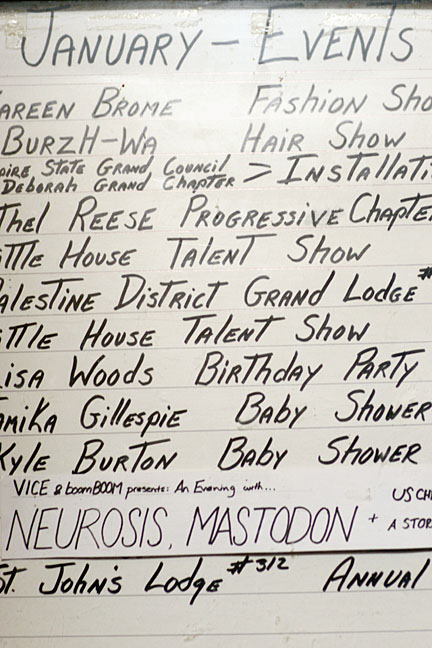 JANUARY - EVENTS
AREEN BROME FASHION SHO
BURZH-WA HAIR SHOW
PIRE STATE GRAND COUNCIL
DEBORAH GRAND CHAPTER > INSTALLATI
Thel REESE PROGRESSIVE Chapter
ITTLe HOUSE TALENT SHOW
ALESTINE DISTRICT GRAND LODGE #
ITTLe HOUSE TALENT SHOW
LISA WOODS BIRThDAY PARTY
AMIKA GILLESPIE BABY SHOWER
KYLE BURTON BABY SHOWER
VICE & boomBOOM presents: An Evening with...
NEUROSIS, MASTODON + US CH
A STOR
ST. JOHN'S LODGE #312 ANNUAL